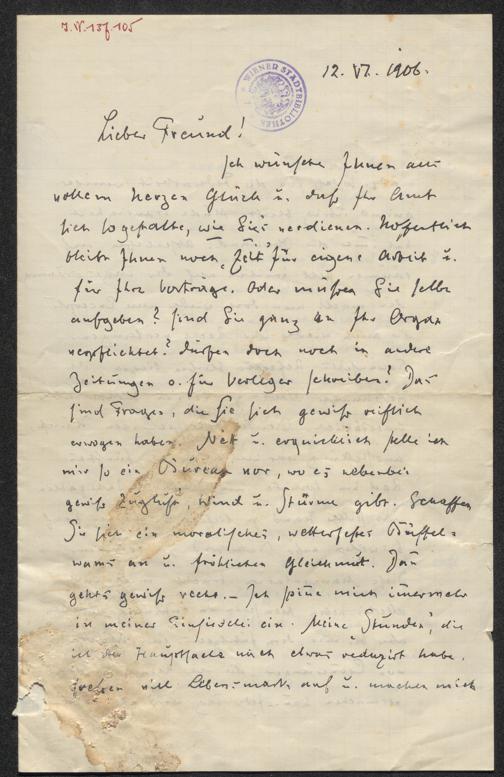 J.N. 137.105
WIENER STADTBIBLIOTHEK
12. VI. 1906.
Lieber Freund!
Ich wünsche Ihnen aus
vollem Herzen Glück u. daß Ihr Amt
sich so gestalte, wie Sie's verdienen. Hoffentlich
bleibt Ihnen noch „Zeit“ für eigene Arbeit u.
für Ihre Vorträge. Oder müssen Sie selbe
aufgeben? Sind Sie ganz an Ihr Organ
verpflichtet? Dürfen doch noch in andere
Zeitungen o. für Verleger schreiben? Das
sind Fragen, die Sie sich gewiß reiflich
erwogen haben. Nett u. erquicklich stelle ich
mir so ein Bureau vor, wo es nebenbei
gewiß Zugluft, Wind u. Stürme gibt. Schaffen
Sie sich ein moralisches, wetterfestes Büffel-
wams an u. fröhlichen Gleichmut. Dann
geht's gewiß recht. – Ich spinne mich immer mehr
in meiner Einsiedelei ein. Meine „Stunden“, die
ich der Hauptsache nach etwas reduzirt habe,
fressen viel Lebensmark auf u. machen mich